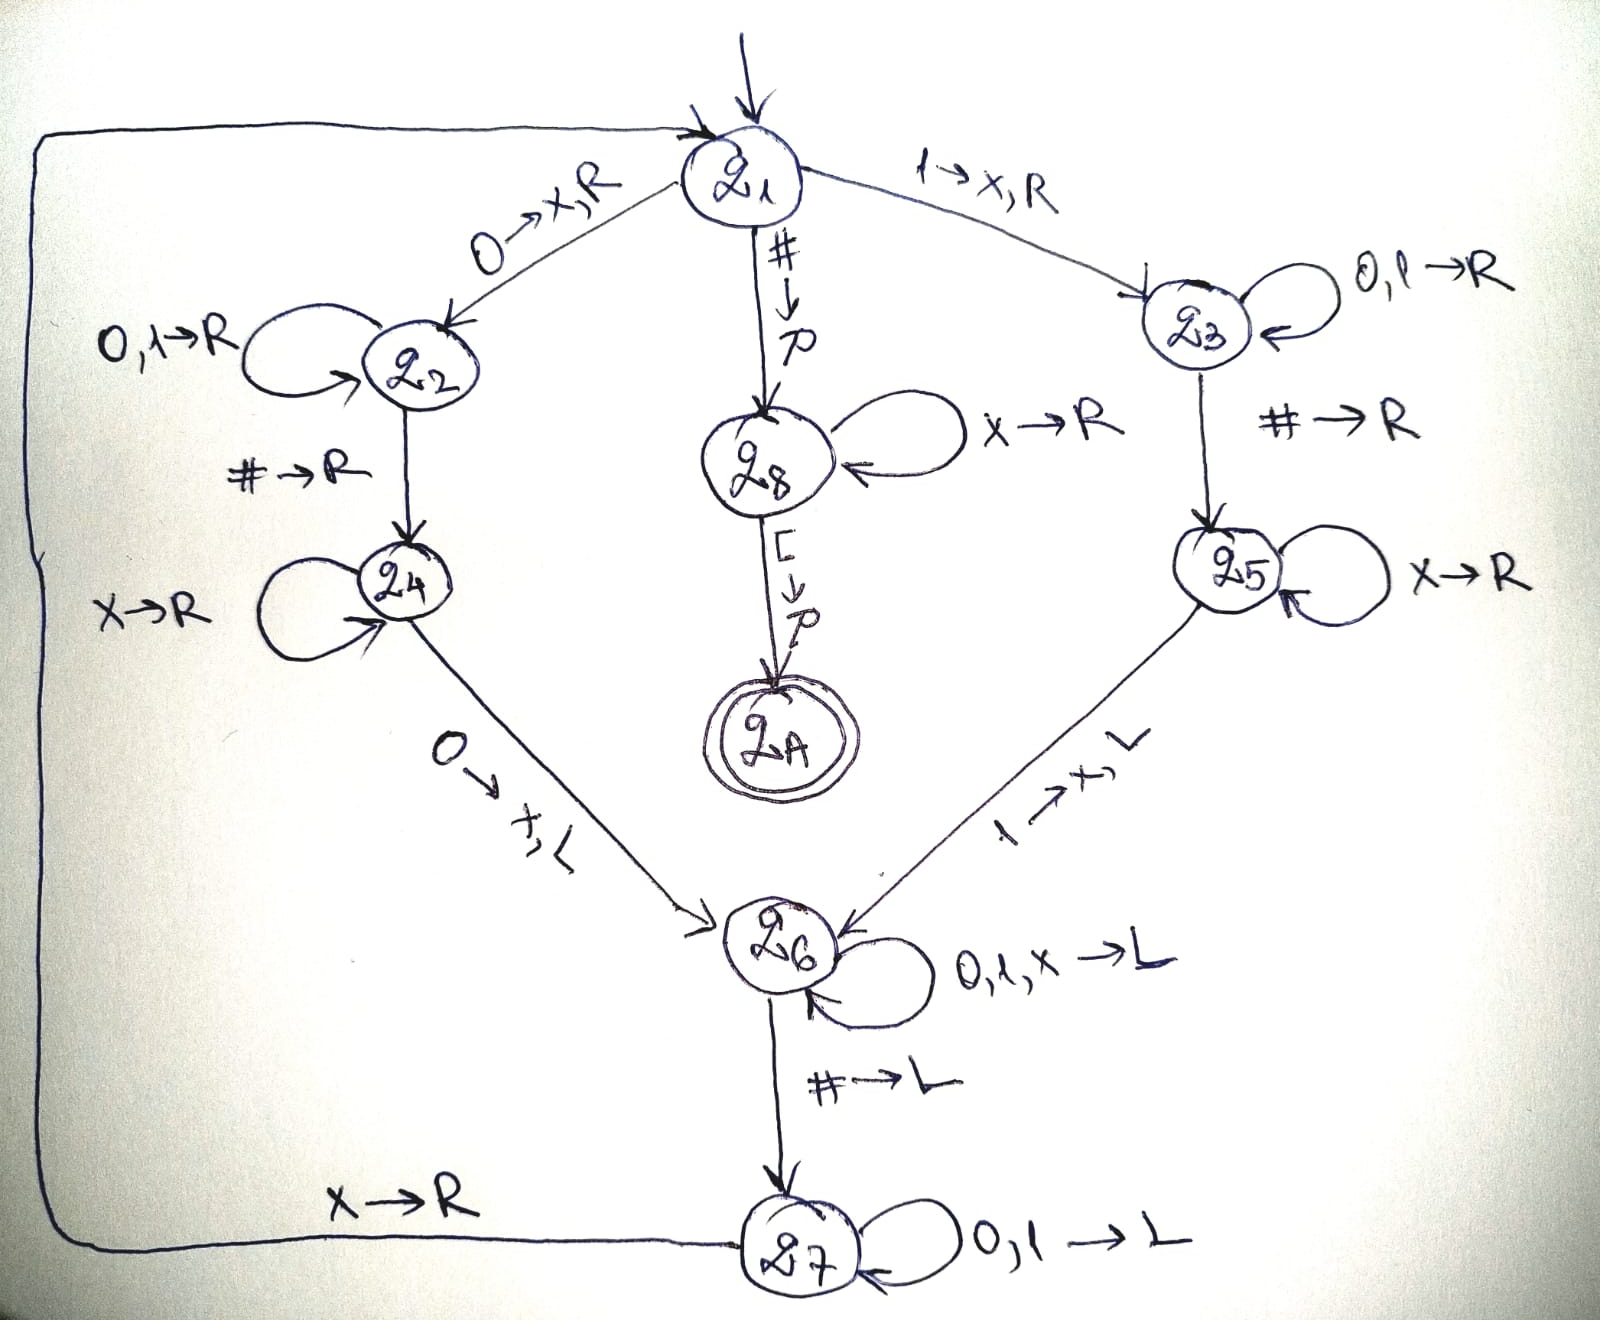 q1
0→x,R
1→x,R
#→R
0,1→R
q2
q3
0,1→R
#→R
q8
x→R
#→R
x→R
q4
⊔→R
q5
x→R
qA
0→x,L
1→x,L
q6
0,1,x→L
#→L
x→R
q7
0,1→L